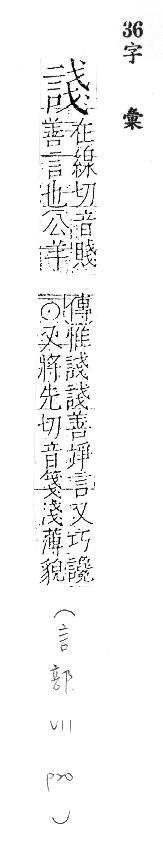 36字彙
諓
在線切音賤
善言也公羊
傳惟諓諓善竫言又巧讒
○又將先切音箋淺薄貌
(言部 VII p20)